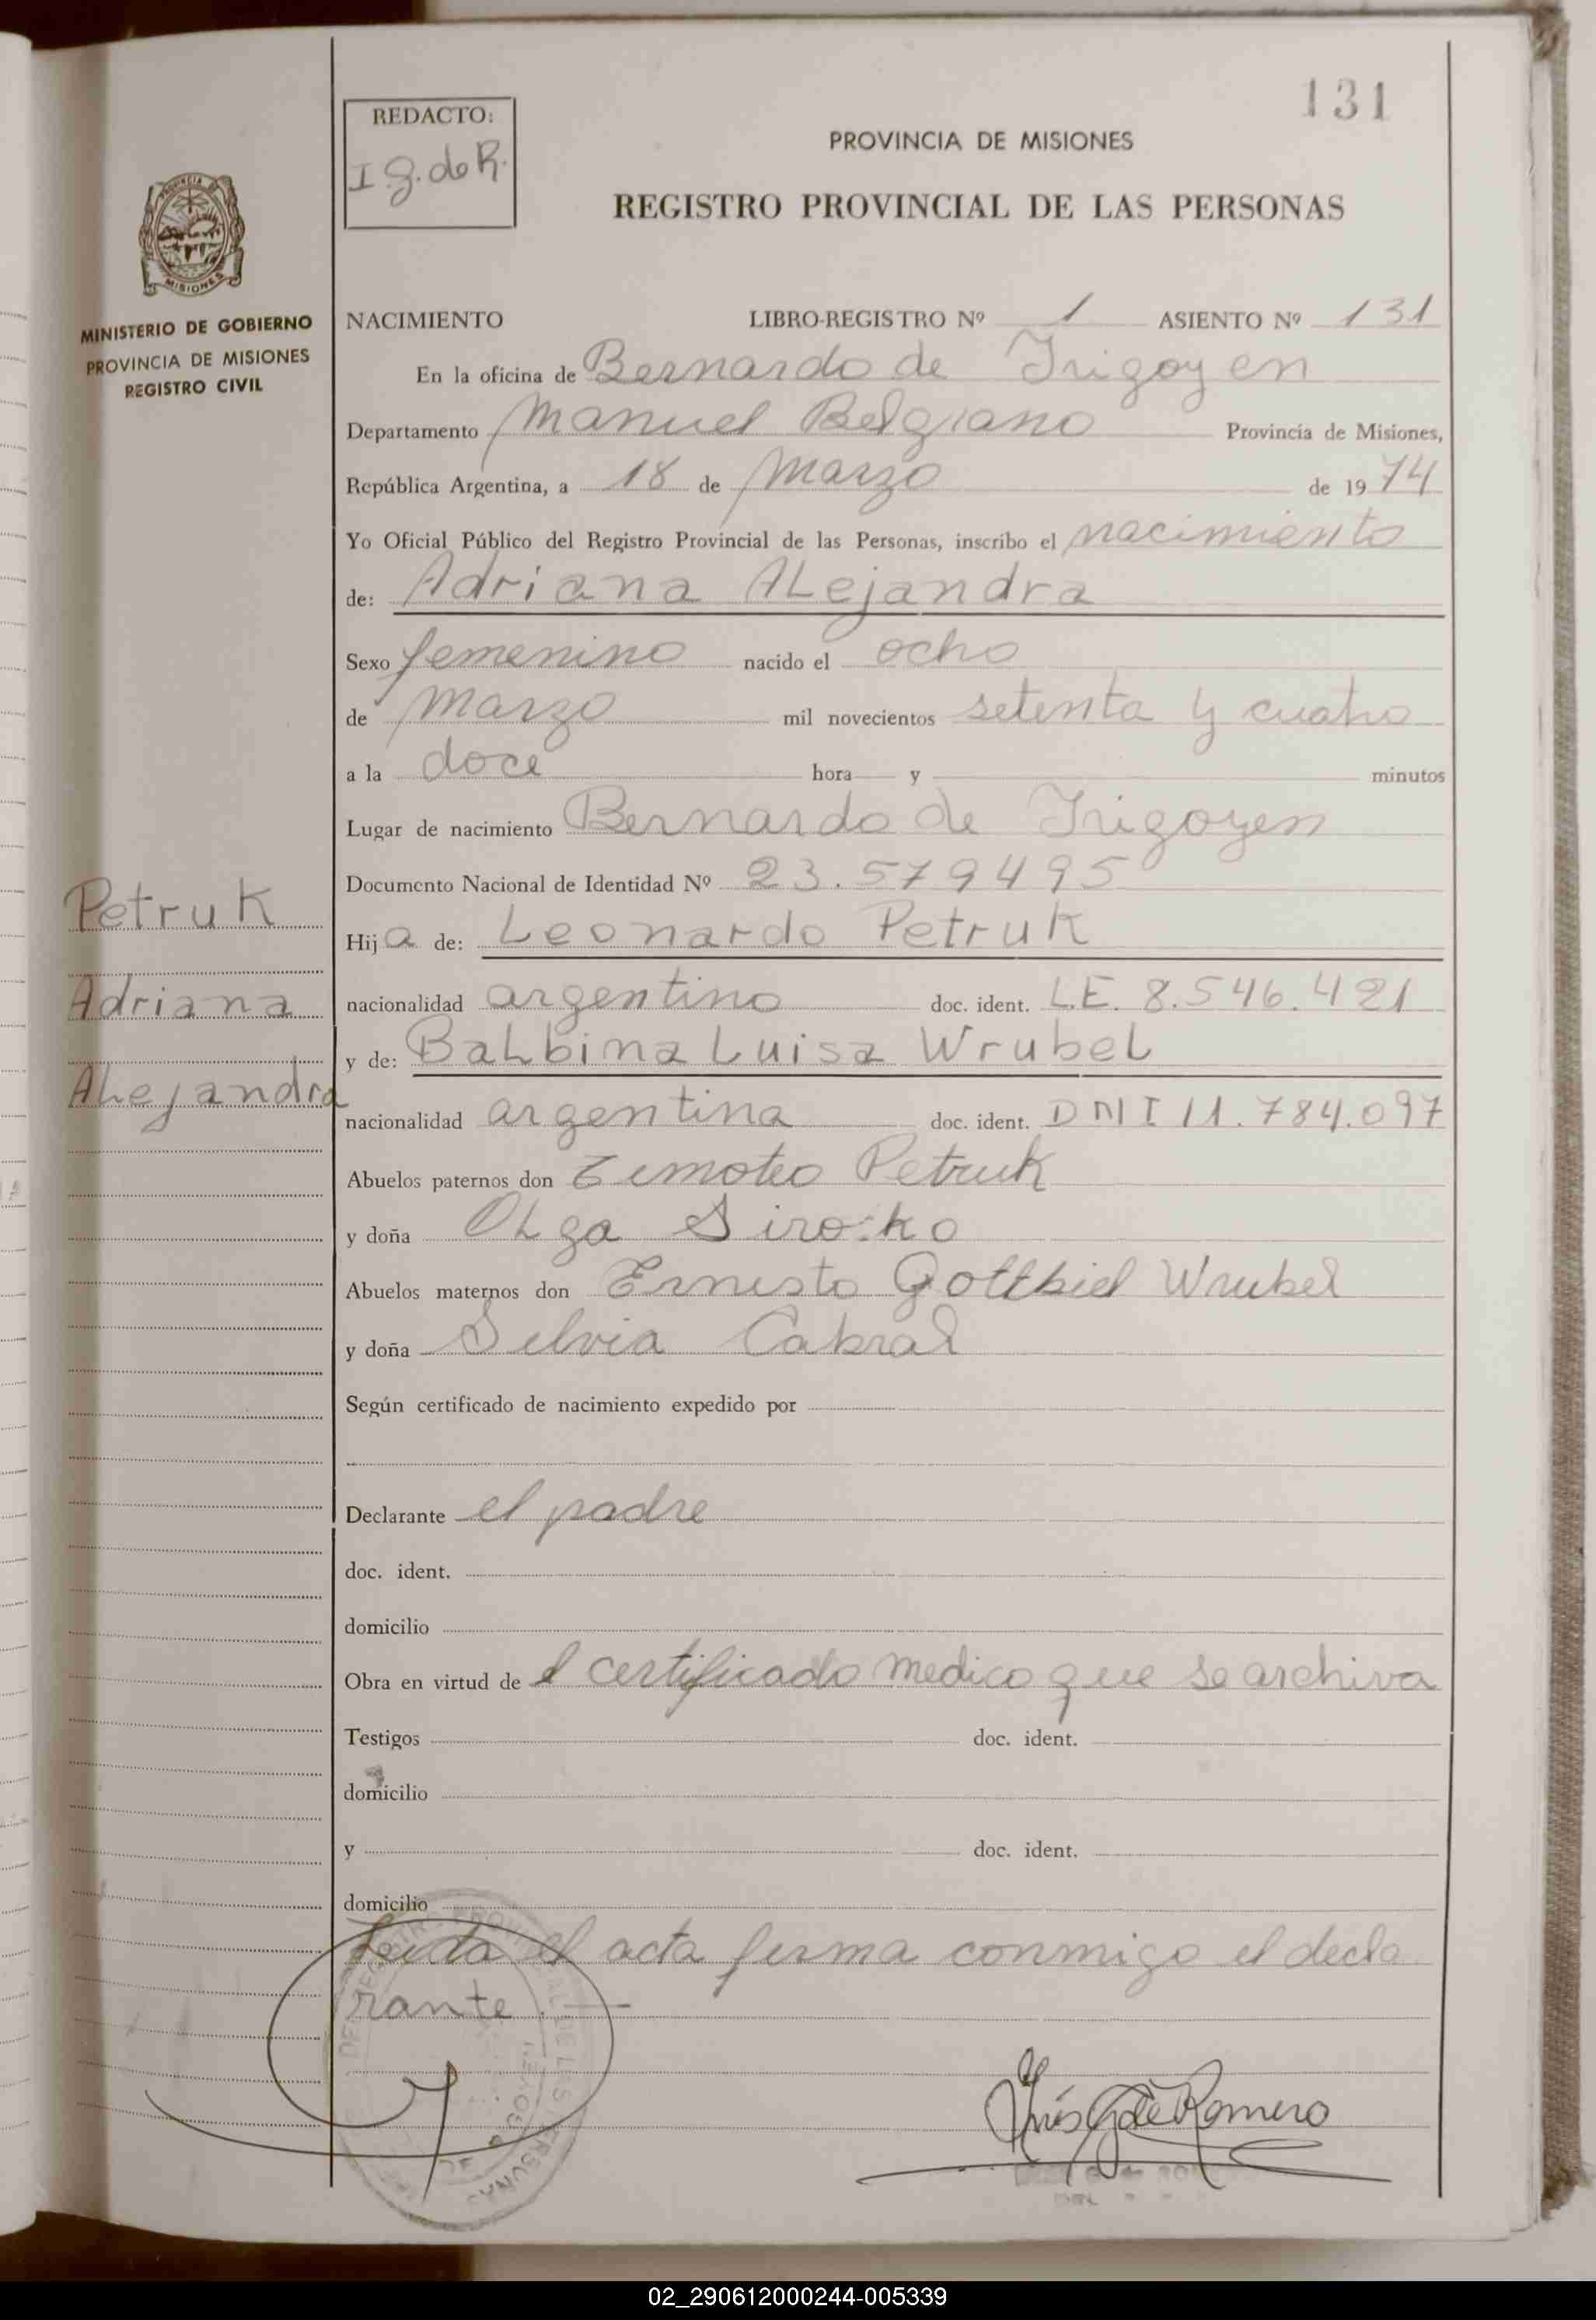 131
REDACTO:
I.g. de R.
PROVINCIA DE MISIONES
REGISTRO PROVINCIAL DE LAS PERSONAS
MINISTERIO DE GOBIERNO
PROVINCIA DE MISIONES
REGISTRO CIVIL
NACIMIENTO LIBRO-REGISTRO Nº 1 ASIENTO Nº 131
En la oficina de Bernardo de Irigoyen
Departamento Manuel Belgrano Provincia de Misiones,
República Argentina, a 18 de Marzo de 1974
Yo Oficial Público del Registro Provincial de las Personas, inscribo el nacimiento
de: Adriana Alejandra
Sexo femenino nacido el ocho
de Marzo mil novecientos setenta y cuatro
a la doce hora y minutos
Lugar de nacimiento Bernardo de Irigoyen
Documento Nacional de Identidad Nº 23.579495
Petruk
Adriana
Alejandra
Hija de: Leonardo Petruk
nacionalidad argentino doc. ident. L.E. 8.546.421
y de: Balbina Luisa Wrubel
nacionalidad argentina doc. ident. DNI 11.784.097
Abuelos paternos don Timoteo Petruk
y doña Olga Sirosko
Abuelos maternos don Ernesto Gottbiel Wrubel
y doña Silvia Cabral
Según certificado de nacimiento expedido por
Declarante el padre
doc. ident.
domicilio
Obra en virtud de l certificado medico que se archiva
Testigos doc. ident.
domicilio
y doc. ident.
domicilio
Leida el acta firma conmigo el decla
rante.—
Inés G de Romero
02_290612000244-005339